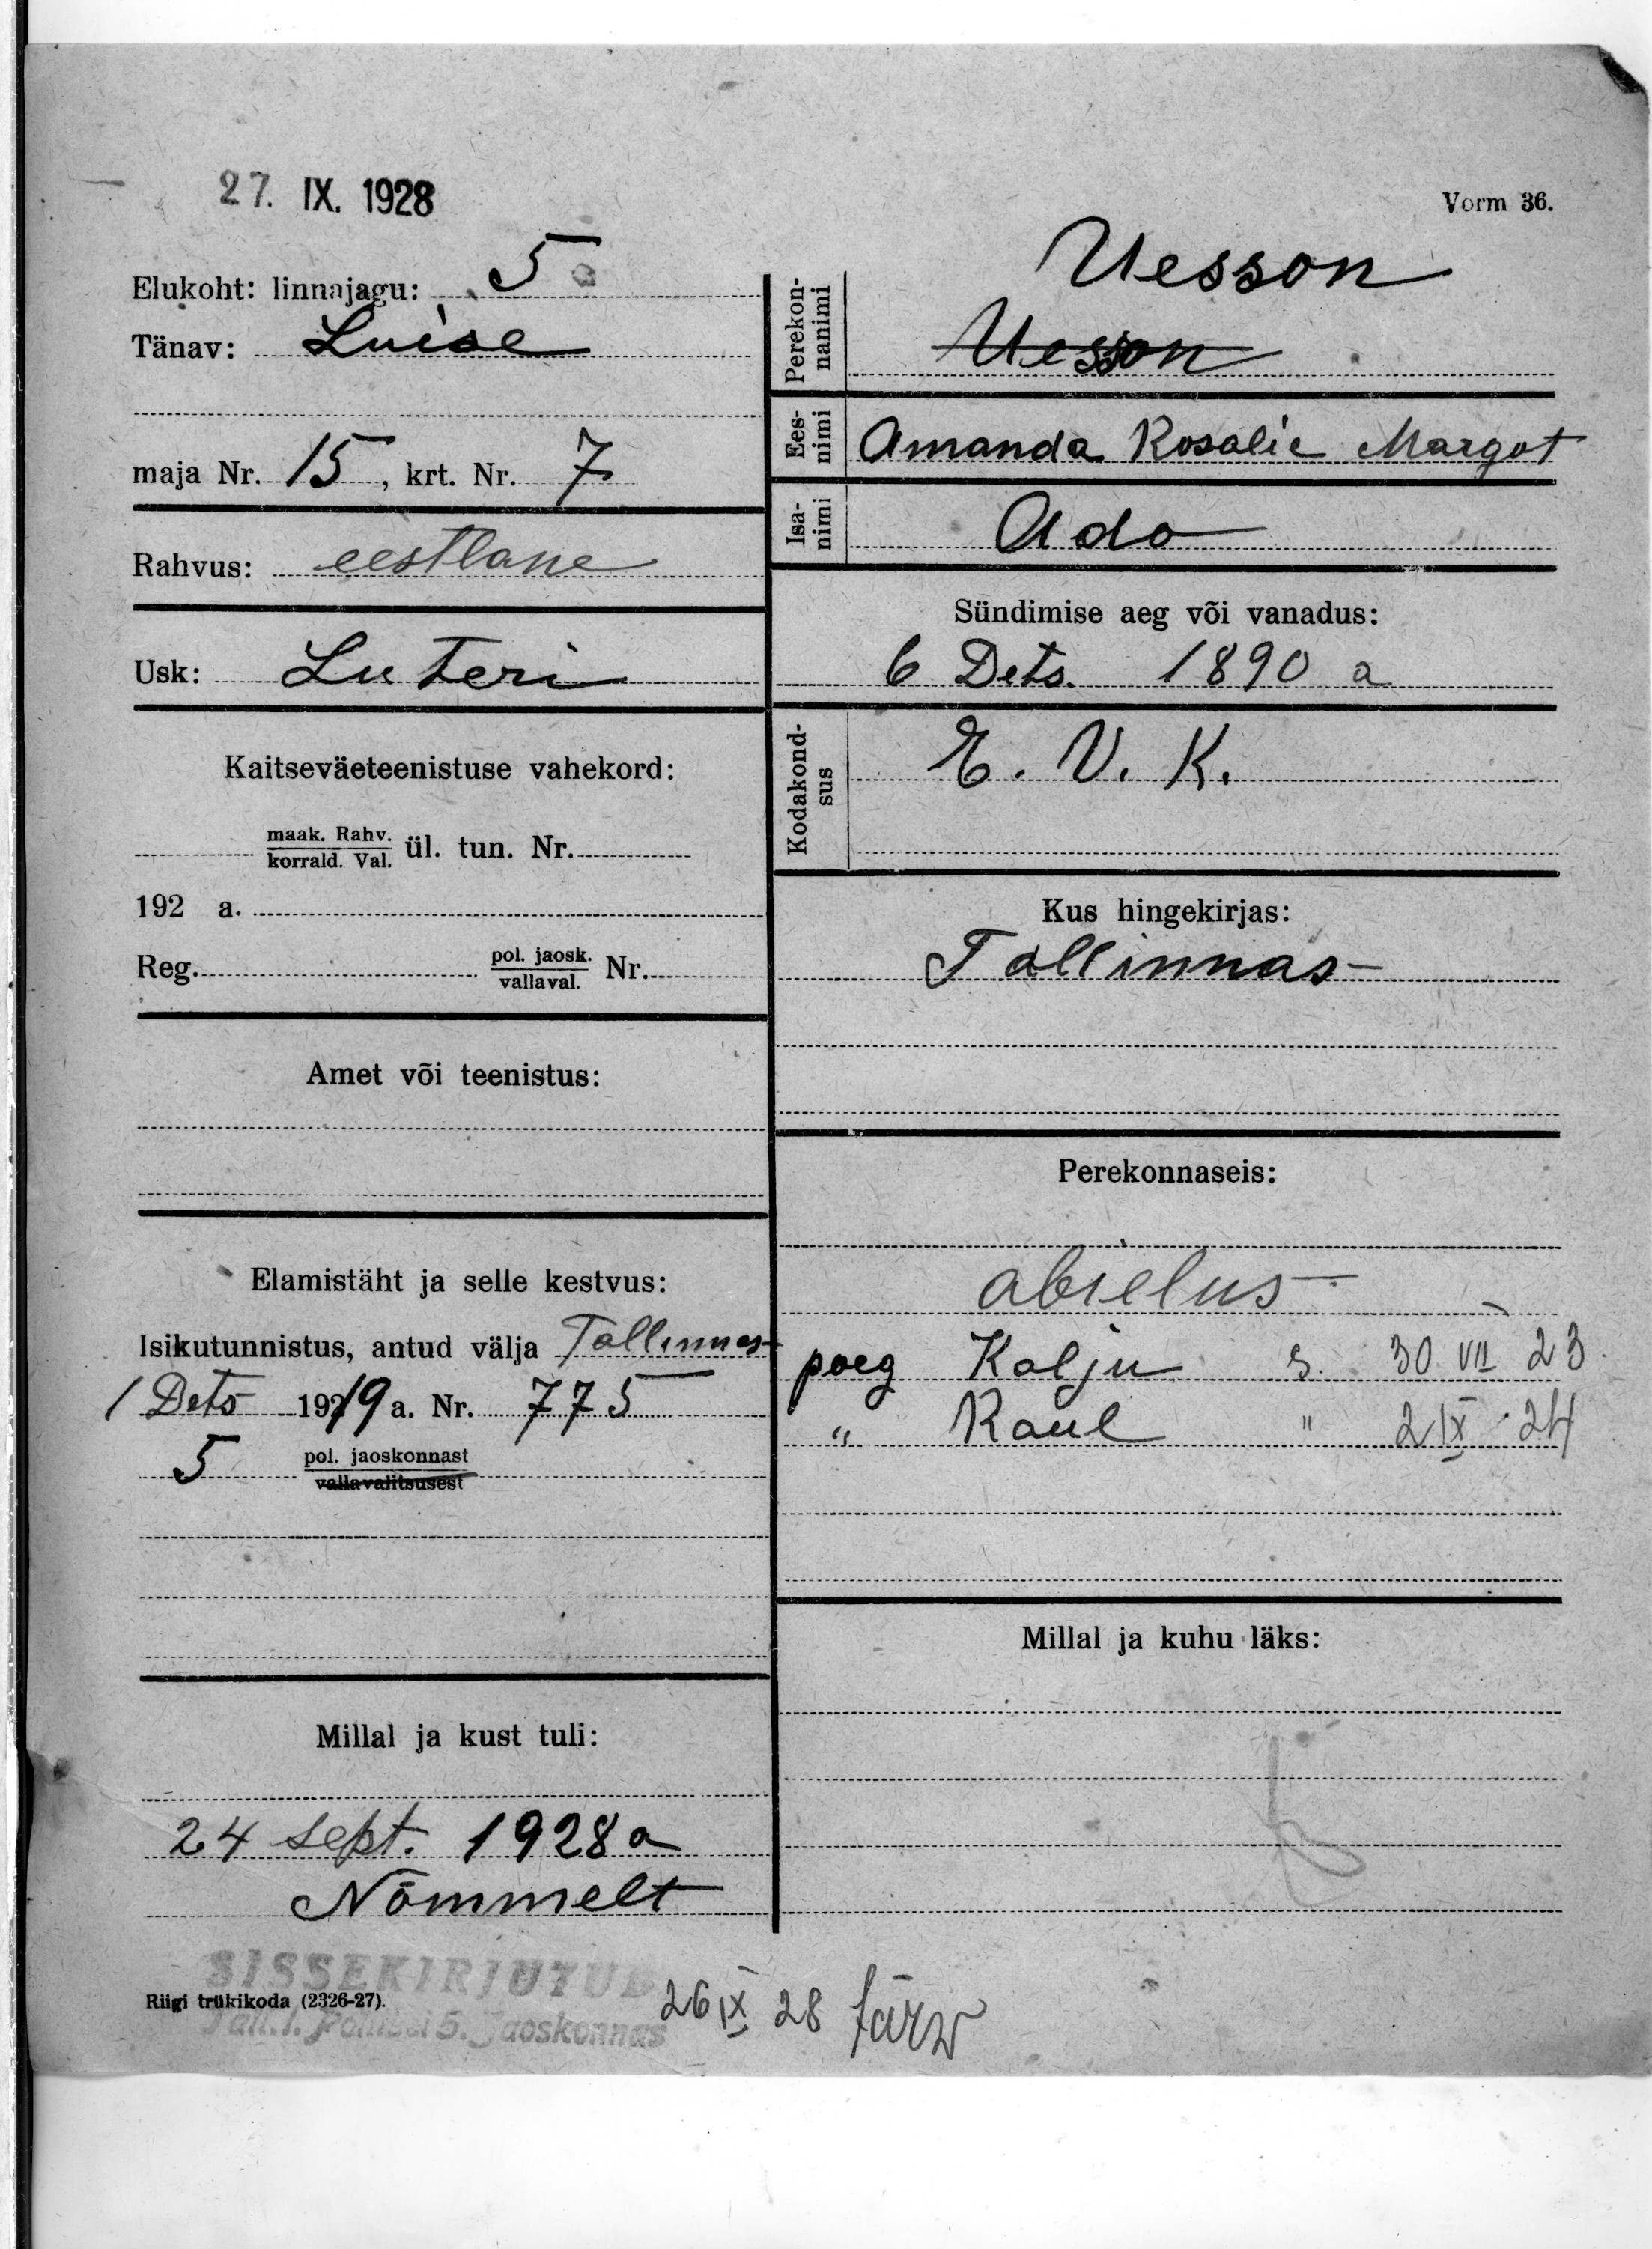 27. IX. 1928
Vorm 36.
Elukoht: linnajagu: 5
Tänav: Luise
maja Nr. 15, krt. Nr. 7
Rahvus: eestlane
Usk: Luteri
Kaitseväeteenistuse vahekord:
maak. Rahv.
korrald. Val. ül. tun. Nr.
192 a.
Reg. pol. jaosk.
vallaval. Nr.
Amet või teenistus:
Elamistäht ja selle kestvus:
Isikutunnistus, antud välja Tallinnas
1 Dets 1919 a. Nr. 775
5 pol. jaoskonnast
vallavalitsusest
Millal ja kust tuli:
24 sept. 1928 a
Nõmmelt
Perekon-
nanimi
Uesson
Uesson
Ees-
nimi Amanda Rosalie Margot
Isa-
nimi Ado
Sündimise aeg või vanadus:
6 Dets. 1890 a
Kodakond-
sus E. V. K.
Kus hingekirjas:
Tallinnas
Perekonnaseis:
abielus
poeg Kalju s. 30 VII 23.
" Raul " 2 IX 24
Millal ja kuhu läks:
SISSEKIRJUTUD
Riigi trükikoda (2326-27).
Tall. l. Politsei 5. Jaoskonnas
26 IX 28